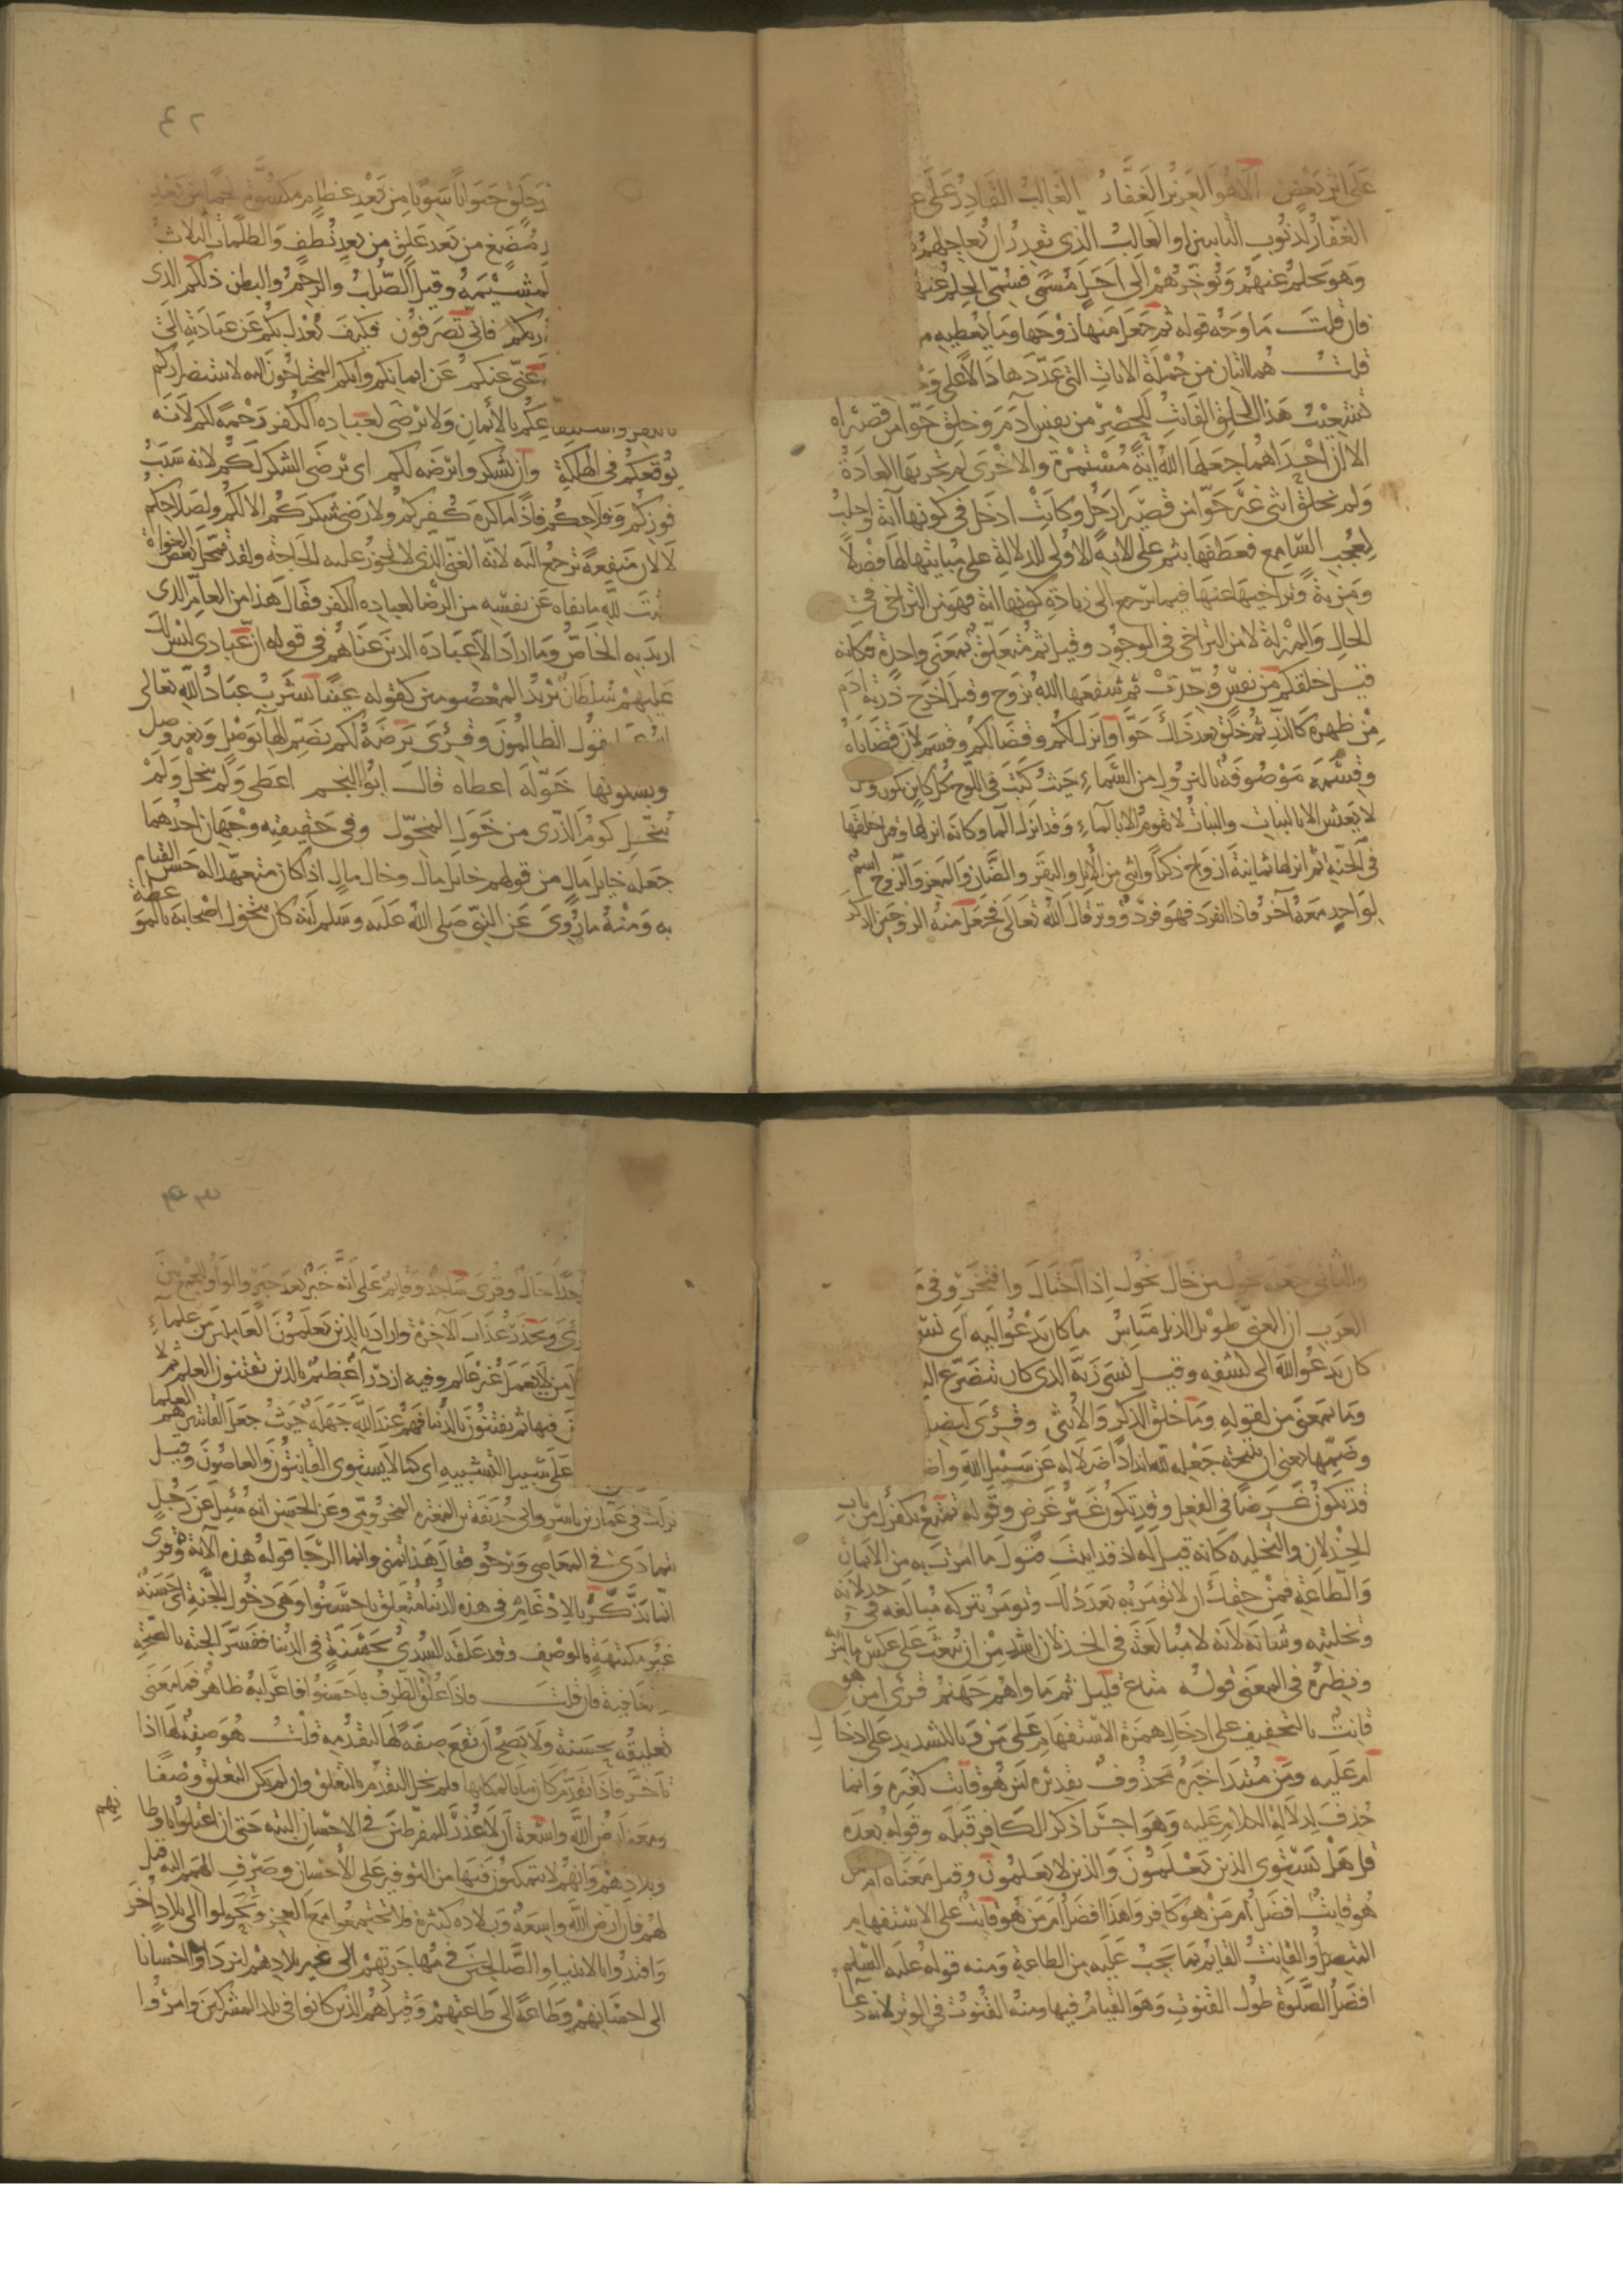 على اثر بعض الا هو العزيز الغفار الغالب القادر على
الغفار لذنوب التائبين او الغالب الذي يقدر ان يعاجلهم
وهو يحلم عنهم ويؤخرهم الى اجل مسمى فسمى الحلم عنهم
فان قلت ما وجه قوله ثم جعل منها زوجها وما يعطيه
قلت هما ايتان من جملة الايات التي عددها دالا على
تشعيب هذا الخلق الفائت للحصر من نفس ادم وخلق حوا من قصيراه
الا ان احداهما جعلها الله اية مستمرة والاخرى لم تجر بها العادة
ولم يخلق انثى غير حوا من قصيرا رجل وكانت ادخل في كونها اية واجلب
لعجب السامع فعطفها بثم على الاية الاولى للدلالة على مباينتها لها فضلا
ومزية وتراخيها عنها فيما يرجع الى زيادة كونها اية فهو من التراخي في
الحال والمنزلة لا من التراخي في الوجود وقيل ثم متعلق بمعنى واحدة فكانه
قيل خلقكم من نفس وحدت ثم شفعها الله بزوج وقيل اخرج ذرية ادم
من ظهره كالذر ثم خلق بعد ذلك حوا وانزل لكم وقضا لكم وقسم لان قضاياه
وقسمه موصوفة بالنزول من السماء حيث كتب في اللوح كل كاين يكون
لا يعيش الا بالنبات والنبات لا يقوم الا بالماء وقد انزل الما وكانه انزلها وقيل خلقها
في الجنة ثم انزلها ثمانية ازواج ذكرا وانثى من الابل والبقر والضان والمعز والزوج اسم
لواحد معه آخر فاذا انفرد فهو فرد ووتر قال الله تعالى فجعل منه الزوجين الذكر
٤٢
خلق حيوانا سويا من بعد عظام مكسوة لحما من بعد
مضغ من بعد علق من بعد نطف والظلمات الثلاث
المشيمة وقيل الصلب والرحم والبطن ذلكم الذي
ربكم فانى تصرفون فكيف يعدل بكم عن عبادته الى
غني عنكم عن ايمانكم وانكم المحتاجون اليه لاستضراركم
بالكفر واستنفاعكم بالايمان ولا يرضى لعباده الكفر رحمة لكم لانه
يوقعكم في الهلكة وان تشكروا يرضه لكم اي يرضى الشكر لكم لانه سبب
فوزكم وفلاحكم فاذا ما كره كفركم ولا رضي شكركم الا لكم ولصلاحكم
لا لان منفعة ترجع اليه لانه الغني الذي لا يجوز عليه الحاجة ولقد تمحل بعض الغواة
ليثبت لله ما نفاه عن نفسه من الرضا لعباده الكفر فقال هذا من العام الذي
اريد به الخاص وما اراد الا عباده الذين عناهم في قوله ان عبادي ليس لك
عليهم سلطان يريد المعصومين كقوله عينا يشرب عباد الله تعالى
يقول الظالمون وقرئ يرضه لكم بضم الها بوصل وبغير وصل
وبسكونها خوله اعطاه قال ابو النجم اعطى ولم يبخل ولم
يبخل كوم الذرى من خول المخول وفي حقيقته وجهان احدهما
جعله خايل مال من قولهم خايل مال وخال مال اذا كان متعهدا له حسن القيام
به ومنه ما روي عن النبي صلى الله عليه وسلم انه كان يتخول اصحابه بالموعظة
والثاني جعله يخول من خال يخول اذا اختال وافتخر وفي
العرب ان الغني طويل الذيل مياس ما كان يدعو اليه اي نسي
كان يدعو الله الى كشفه وقيل نسي ربه الذي كان يتضرع اليه
وما بمعنى من لقوله وما خلق الذكر والانثى وقرئ ليضل
وضمها يعني ان نتيجة جعله لله اندادا ضلاله عن سبيل الله
قد تكون غرضا في الفعل وقد تكون غير غرض وقوله تمتع بكفرك من باب
الخذلان والتخلية كانه قيل له اذ قد ابيت قبول ما امرت به من الايمان
والطاعة فمن حقك ان لا تؤمر به بعد ذلك وتؤمر بتركه مبالغة في خذلانه
وتخليته وشانه لانه لا مبالغة في الخذلان اشد من ان يبعث على عكس ما امر
ونظيره في المعنى قوله متاع قليل ثم ماواهم جهنم قرئ امن هو
قانت بالتخفيف على ادخال همزة الاستفهام على من وبالتشديد على ادخال
ام عليه ومن مبتدا خبره محذوف تقديره امن هو قانت كغيره وانما
حذف لدلالة الكلام عليه وهو اجرا ذكر الكافر قبله وقوله بعده
قل هل يستوي الذين يعلمون والذين لا يعلمون وقيل معناه امن
هو قانت افضل ام من هو كافر او اهذا افضل ام من هو قانت على الاستفهام
المتصل والقانت القائم بما يجب عليه من الطاعة ومنه قوله عليه السلم
افضل الصلوة طول القنوت وهو القيام فيها ومنه القنوت في الوتر لانه دعا
٤٣
ساجدا حال وقرئ ساجد وقايم على انه خبر بعد خبر والواو للجمع بين
وقرئ ويحذر عذاب الآخرة واراد بالذين يعلمون العاملين من علماء
من لا يعمل غير عالم وفيه ازدرآ عظيم بالذين يقتنون العلم ثم لا
فيها ثم يفتنون بالدنيا فهم عند الله جهلة حيث جعل القانتين هم العلما
على سبيل التشبيه اي كما لا يستوي القانتون والعاصون وقيل
نزلت في عمار بن ياسر وابي حذيفة بن المغيرة المخزومي وعن الحسن انه سئل عن رجل
يتمادى في المعاصي ويرجو فقال هذا تمني وانما الرجا قوله هذه الآية وقرئ
انما يذكر بالادغام في هذه الدنيا متعلق باحسنوا وهي دخول الجنة اي حسنة
غير مكتنهة بالوصف وقد علقه السدي بحسنة في الدنيا ففسر الحسنة بالصحة
والعافية فان قلت فاذا علق الظرف باحسنوا فاعرابه ظاهر فما معنى
تعليقه بحسنة ولا يصح ان تقع صفة لها لتقدمه قلت هو صفة لها اذا
تاخر فاذا تقدم كان بيانا لمكانها فلم يخل التقدم بالتعلق وان لم يكن التعلق وصفا
ومعنى ارض الله واسعة ان لا عذر للمفرطين في الاحسان البتة حتى ان اعتلوا باوطانهم
وبلادهم وانهم لا يتمكنون فيها من التوفير على الاحسان وصرف الهمم اليه قيل
لهم فان ارض الله واسعة وبلاده كثيرة فلا تجتمعوا مع العجز وتحولوا الى بلاد اخر
واقتدوا بالانبيا والصالحين في مهاجرتهم الى غير بلادهم ليزدادوا احسانا
الى احسانهم وطاعة الى طاعتهم وقيل هم الذين كانوا في بلد المشركين وامروا